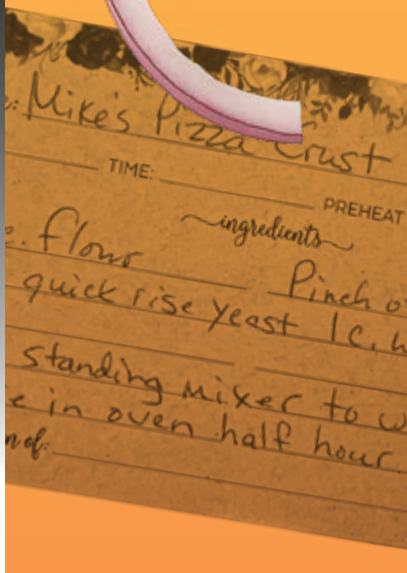 Mike's Pizza Crust
TIME: PREHEAT
ingredients
flour Pinch
quick rise yeast 1 c.
standing mixer to
in oven half hour.